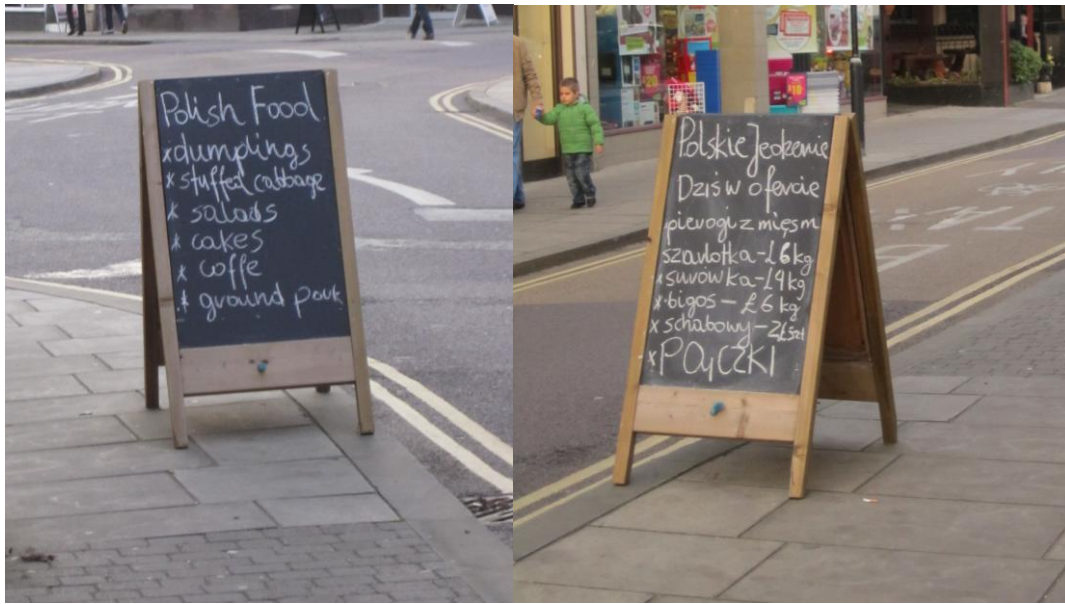 Polish Food
*dumplings
*stuffed cabbage
* salads
* cakes
* coffe
* ground pork
Polskie Jedzenie
Dziś w ofercie
pierogi z mięsm
szarlotka-£6kg
*surówka-£4kg
*bigos-£6kg
*schabowy-2£szt
*PĄCZKI
£10